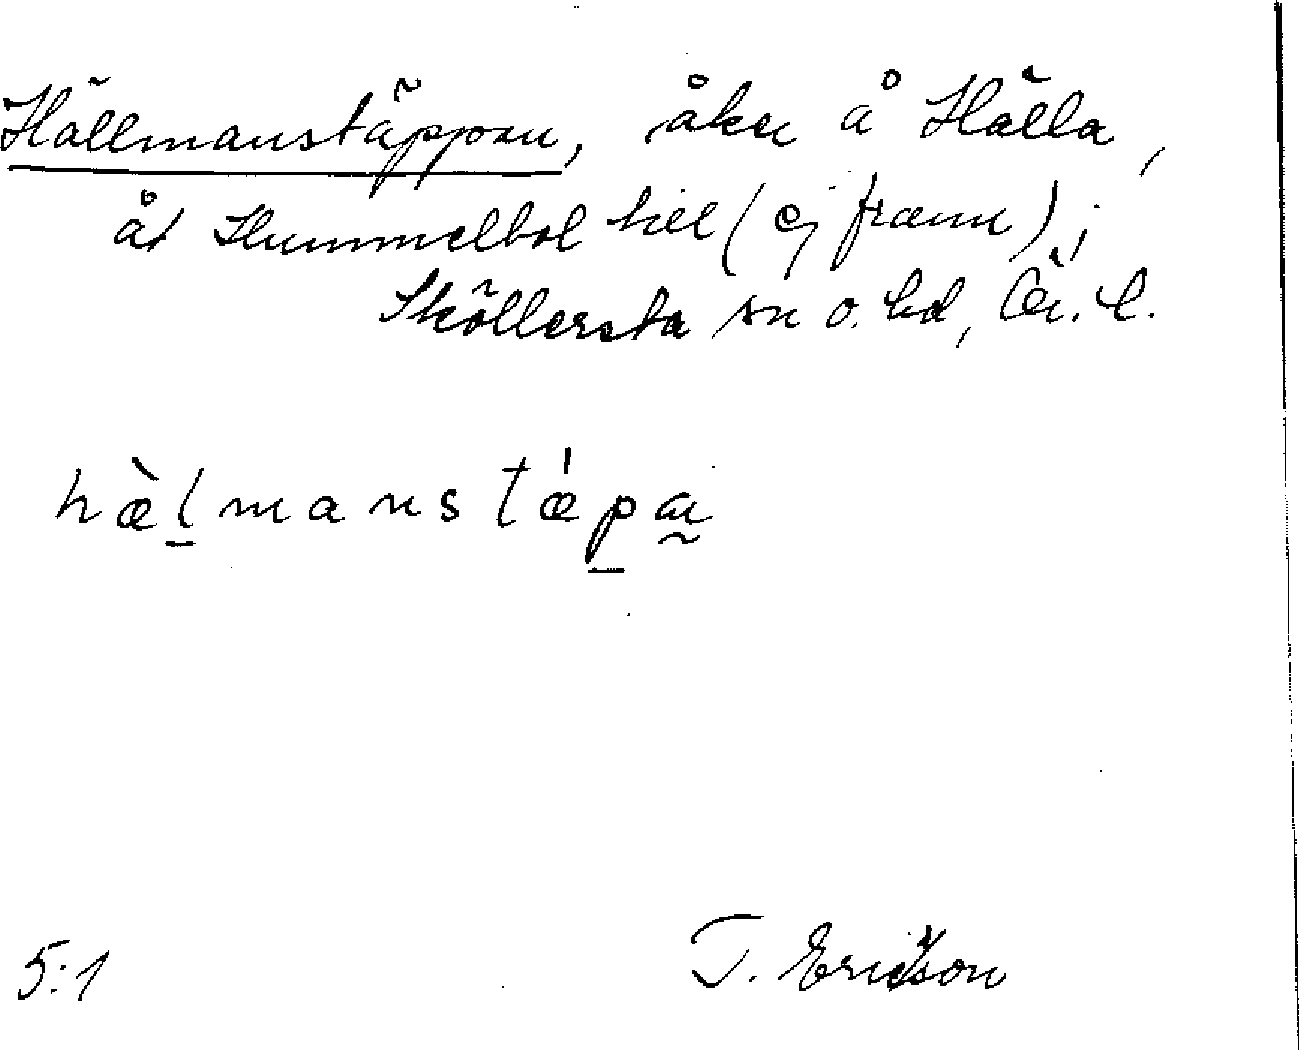 Hällmanstäppan, åker å Hälla,
åt Hummelbol till (ej fram);
Sköllersta sn o. hd, Ör. l.
hæ̀l̠manstǽp̠a
5:1 T. Ericsson